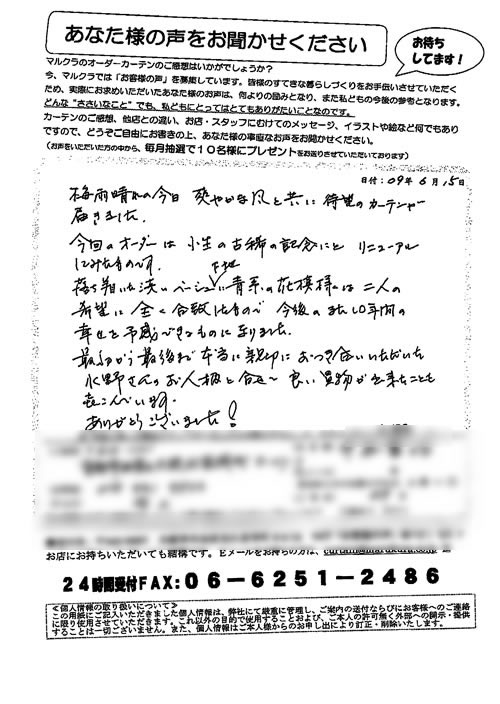 あなた様の声をお聞かせください
お待ち
してます！
マルクラのオーダーカーテンのご感想はいかがでしょうか？
今、マルクラでは「お客様の声」を募集しています。皆様のすてきな暮らしづくりをお手伝いさせていただく
ため、実際にお求めいただいたあなた様のお声は、何よりの励みとなり、また私どもの今後の参考となります。
どんな“ささいなこと”でも、私どもにとってはとてもありがたいことなのです。
カーテンのご感想、他店との違い、お店・スタッフにむけてのメッセージ、イラストや絵など何でもあり
ですので、どうぞご自由にお書きの上、あなた様の率直なお声をお聞かせください。
（お声をいただいた方の中から、毎月抽選で１０名様にプレゼントをお送りさせていただいております）
日付：09年 6月 15日
梅雨晴れの今日 爽やかな風と共に 待望のカーテンが
届きました。
今回のオーダーは 小生の古稀の記念にと リニューアル
してみたものです。
下地
落ち着いた淡いベージュに青系の花模様は 二人の
希望に 全く合致したもので 今後のまた10年間の
幸せを予感できるものになりました。
最初から最後まで 本当に親切に おつき合いいただいた
水野さんのお人柄と合せ 良い買物が出来たことも
喜こんでいます。
ありがとうございました！
お店にお持ちいただいても結構です。Ｅメールをお持ちの方は、
２４時間受付ＦＡＸ：０６－６２５１－２４８６
＜個人情報の取り扱いについて＞
この用紙にご記入いただきました個人情報は、弊社にて厳重に管理し、ご案内の送付ならびにお客様へのご連絡
に限り使用させていただきます。これ以外の目的で使用することおよび、ご本人の許可無く外部への開示・提供
することは一切ございません。また、個人情報はご本人様からのお申し出により訂正・削除いたします。